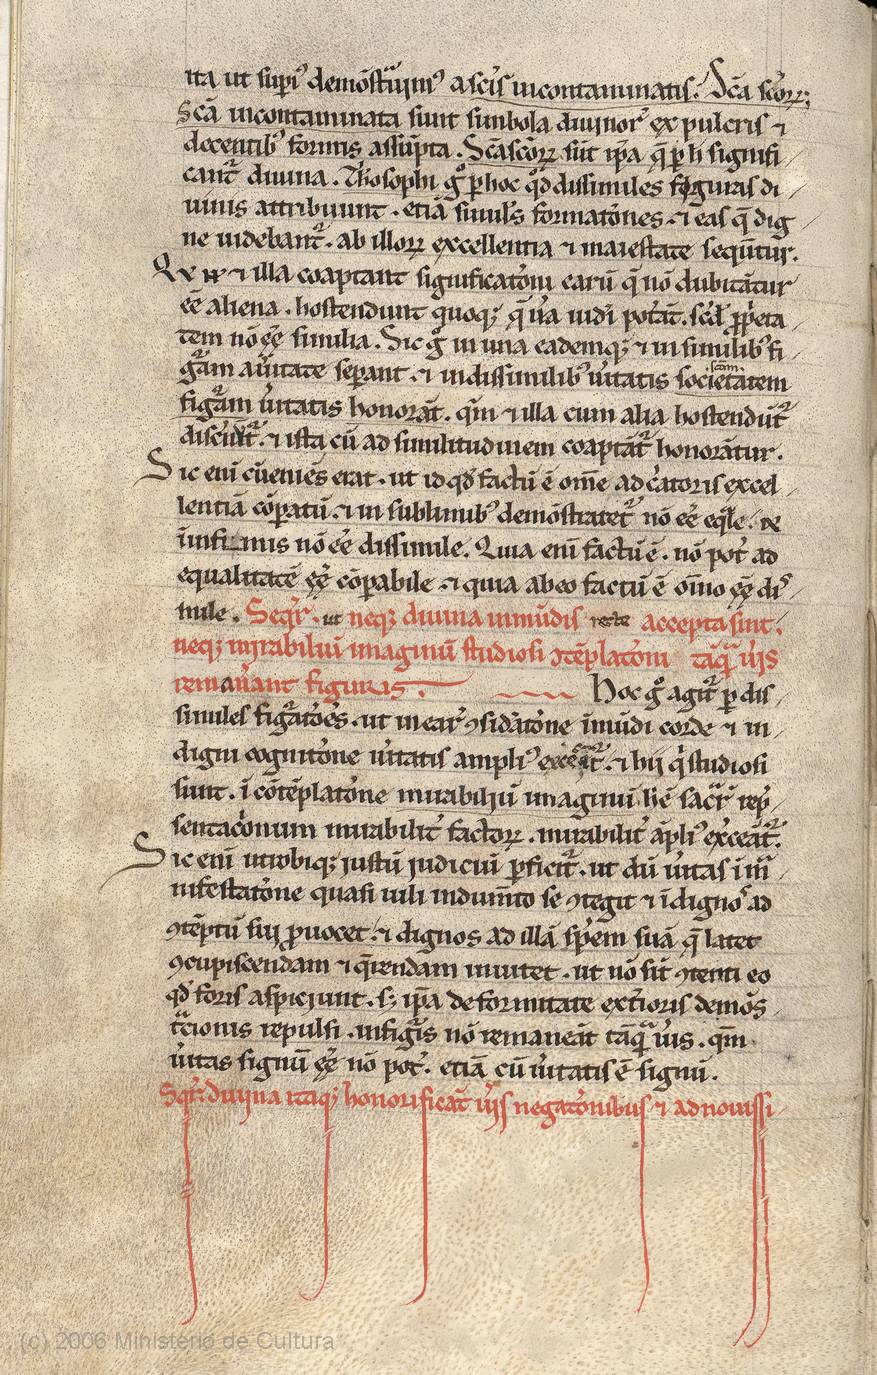 ita ut supͥꝰ demōst̄ᵃuimꝰ a scīs incontaminatis. Scā scōꝝ;
Scā incontaminata sunt simbola diuinoꝝ ex pulcris ⁊
decentibꝰ formis assūpta. Scāscōꝝ sūt ip̄a q̄ ꝑ h̄ signifi
cant᷑ diuina. Th̓osophi gͦ ꝑ hoc qd̄ dissimiles figuras di
uinis attribuunt. etiā similes formatōnes. ⁊ eas q̄ dig
ne uidebant᷑. ab illoꝝ excellentia ⁊ maiestate seqūtur.
⁊ illa coaptant significatōni earū q̄ nō dubitātur
eē aliena. hostendunt quoqꝫ q̄ ūa uidi potāt. sed̄ ꝓpͥeta
tem nō eē similia. Sic gͦ in una eademqꝫ ⁊ in similibꝰ fi
gᷓam a ūitate seꝑant. ⁊ in dissimilibꝰ ūitatis societatem
figᷓam ūitatis honorāt. qm̄ ⁊ illa cum alia hostendūt᷑
discͥnūt᷑. ⁊ ista cū ad similitudinem coaptāt᷑ honorātur.
Sic eni ꝯueniēs erat. ut id qd̄ factū ē om̄e ad cᵃtoris excel
lentiā cōꝑatū. ⁊ in sublimibꝰ demōstratet᷑ nō eē eq̄le.
infimis nō eē dissimile. Quia eni factū ē. nō pot̄ ad
equalitatē eē cōꝑabile. ⁊ quia ab eo factū ē oīno eē disͥ
mile. Seqͥr. ut neqꝫ diuina inmūdis recte accepta sint.
neqꝫ mirabiliū imaginū studiosi ꝯtēplatōni tāqᷓ ūis
remaneant figuris. Hoc gͦ agit᷑ ꝑ dis
similes figᷓatōēs. ut in earꝝ ꝯsidᷓatōne inmūdi corde ⁊ in
digni cognitōne ūitatis ampliꝰ exceāt᷑. ⁊ hij qͥ studiosi
sunt. ī cōtēplatōne mirabiliū imaginū h̄ē sacͣꝝ rep̄
sentacōnum mirabilit᷑ factoꝝ. mirabilit᷑ āpliꝰ exceāt᷑.
Sic eni utrobiqꝫ justū judiciū ꝑficit᷑. ut dū ūitas ī mᷓ
nifestatōne quasi uili indumto se ꝯtegit ⁊ īdignoˢ ad
ꝯtēptū sui ꝓuocet. ⁊ dignos ad illā spēm suā q̄ latet
ꝯcupiscendam ⁊ q̄rendam inuitet. ut nō sīt ꝯtenti eo
qd̄ foris aspiciunt. sꝫ ip̄a deformitate extͥioris demōs
tᷓcionis repulsi. in figᷓis nō remaneāt tāqᷓ ūis. qm̄
ūitas signū eē nō pot̄. etiā cū ūitatis ē signū.
Seqͥr. diuina itaqꝫ honorificāt ūis negatōnibus ⁊ ad nouissi